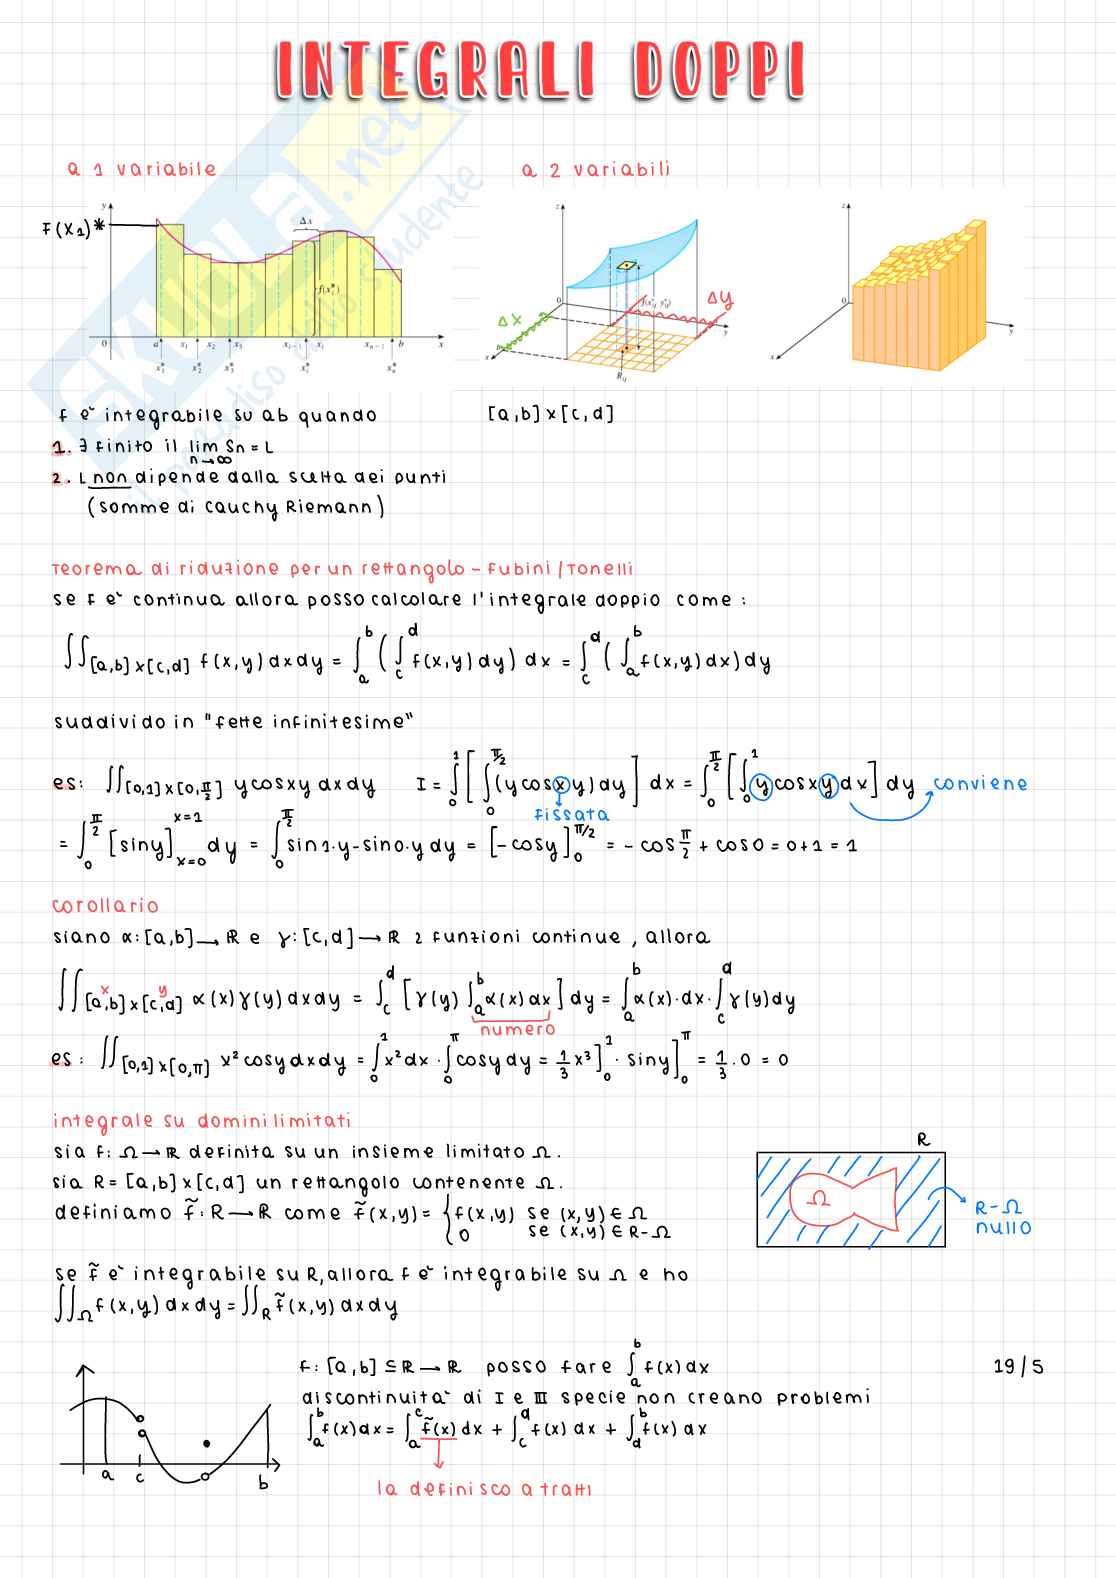 INTEGRALI DOPPI
a 1 variabile
a 2 variabili
F(x₁)*
y
Δx
f(xᵢ*)
0 a x₁ x₂ x₃ xᵢ₋₁ xᵢ xₙ₋₁ b x
x₁* x₂* x₃* xᵢ* xₙ*
z
0
Δx
Δy
y
x
Rᵢⱼ
z
0
y
x
SKUOLA.net
il paradiso dello studente
f e` integrabile su ab quando
[a,b]×[c,d]
1. ∃ finito il lim Sn = L
n→∞
2. L non dipende dalla scelta dei punti
(somme di Cauchy Riemann)
Teorema di riduzione per un rettangolo - Fubini/Tonelli
se f e` continua allora posso calcolare l'integrale doppio come :
∬[a,b]×[c,d] f(x,y) dxdy = ∫ₐᵇ (∫꜀ᵈ f(x,y) dy) dx = ∫꜀ᵈ (∫ₐᵇ f(x,y) dx) dy
suddivido in "fette infinitesime"
es: ∬[0,1]×[0,π/2] y cosxy dxdy I = ∫₀¹ [∫₀^π/2 (y cosxy) dy] dx = ∫₀^π/2 [∫₀¹ y cosxy dx] dy conviene
fissata
= ∫₀^π/2 [siny]ₓ₌₀ˣ⁼¹ dy = ∫₀^π/2 sin1·y - sin0·y dy = [-cosy]₀^π/2 = - cos π/2 + cos0 = 0+1 = 1
corollario
siano α:[a,b]→ℝ e γ:[c,d]→ℝ 2 funzioni continue , allora
x y
∬[a,b]×[c,d] α(x)γ(y) dxdy = ∫꜀ᵈ [γ(y) ∫ₐᵇ α(x) dx] dy = ∫ₐᵇ α(x)·dx·∫꜀ᵈ γ(y) dy
numero
es: ∬[0,1]×[0,π] x² cosy dxdy = ∫₀¹ x² dx · ∫₀^π cosy dy = 1/3 x³]₀¹ · siny]₀^π = 1/3 · 0 = 0
integrale su domini limitati
sia f: Ω→ℝ definita su un insieme limitato Ω.
sia R = [a,b]×[c,d] un rettangolo contenente Ω.
definiamo f̃: R→ℝ come f̃(x,y) = { f(x,y) se (x,y) ∈ Ω
0 se (x,y) ∈ R-Ω
R
Ω
R-Ω
nullo
se f̃ e` integrabile su R, allora f e` integrabile su Ω e ho
∬Ω f(x,y) dxdy = ∬R f̃(x,y) dxdy
f: [a,b] ⊆ ℝ → ℝ posso fare ∫ₐᵇ f(x) dx
19/5
discontinuita` di I e III specie non creano problemi
∫ₐᵇ f(x) dx = ∫ₐᶜ f̃(x) dx + ∫꜀ᵈ f(x) dx + ∫ᵈᵇ f(x) dx
a c b
la definisco a tratti